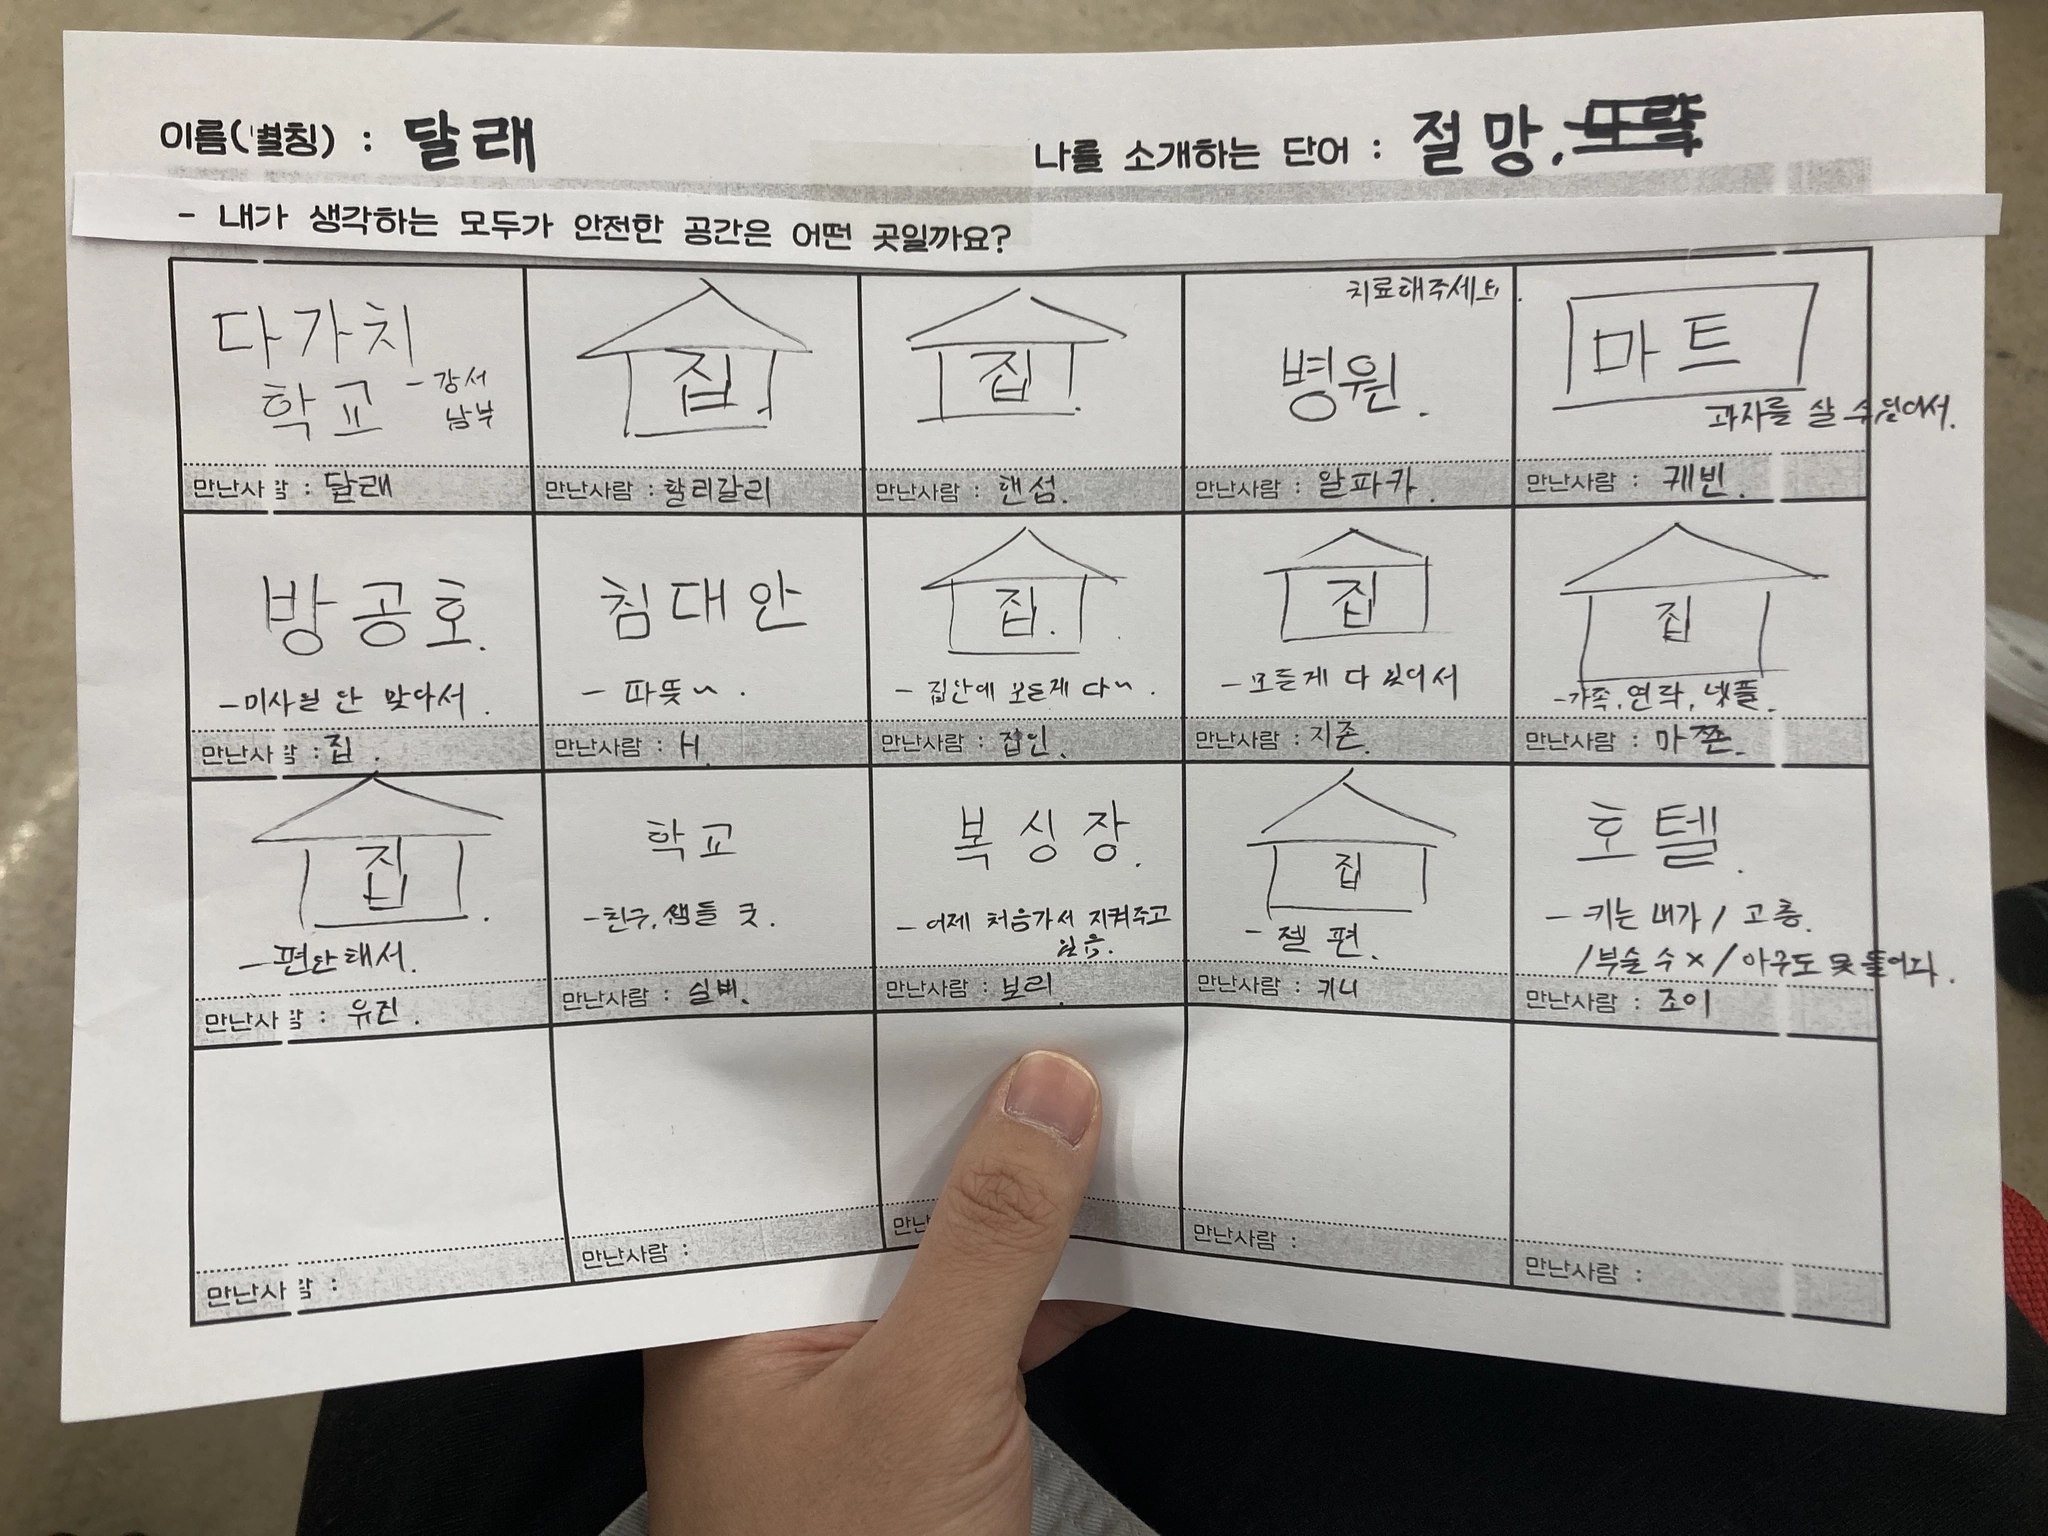 이름(별칭) : 달래
나를 소개하는 단어 : 절망.
- 내가 생각하는 모두가 안전한 공간은 어떤 곳일까요?
다가치
학교 - 강서
남부
만난사람 : 달래
집.
만난사람 : 할리갈리
집.
만난사람 : 핸섬.
치료해주세요.
병원.
만난사람 : 알파카.
마트
과자를 살 수 있어서.
만난사람 : 케빈.
방공호.
- 미사일 안 맞아서.
만난사람 : 집.
침대안
- 파뜻~.
만난사람 : H.
집.
- 집안에 모든게 다~.
만난사람 : 집인.
집
- 모든게 다 있어서
만난사람 : 지존.
집
- 가족, 연락, 넷플.
만난사람 : 마쫀.
집.
- 편안해서.
만난사람 : 유진.
학교
- 친구, 쌤들 굿.
만난사람 : 실버.
복싱장.
- 어제 처음가서 지켜주고
있음.
만난사람 : 보리.
집
- 젤 편.
만난사람 : 키니
호텔.
- 키는 내가 / 고층.
/ 부술 수 x / 아무도 못 들어와.
만난사람 : 조이
만난사람 :
만난사람 :
만난
만난사람 :
만난사람 :